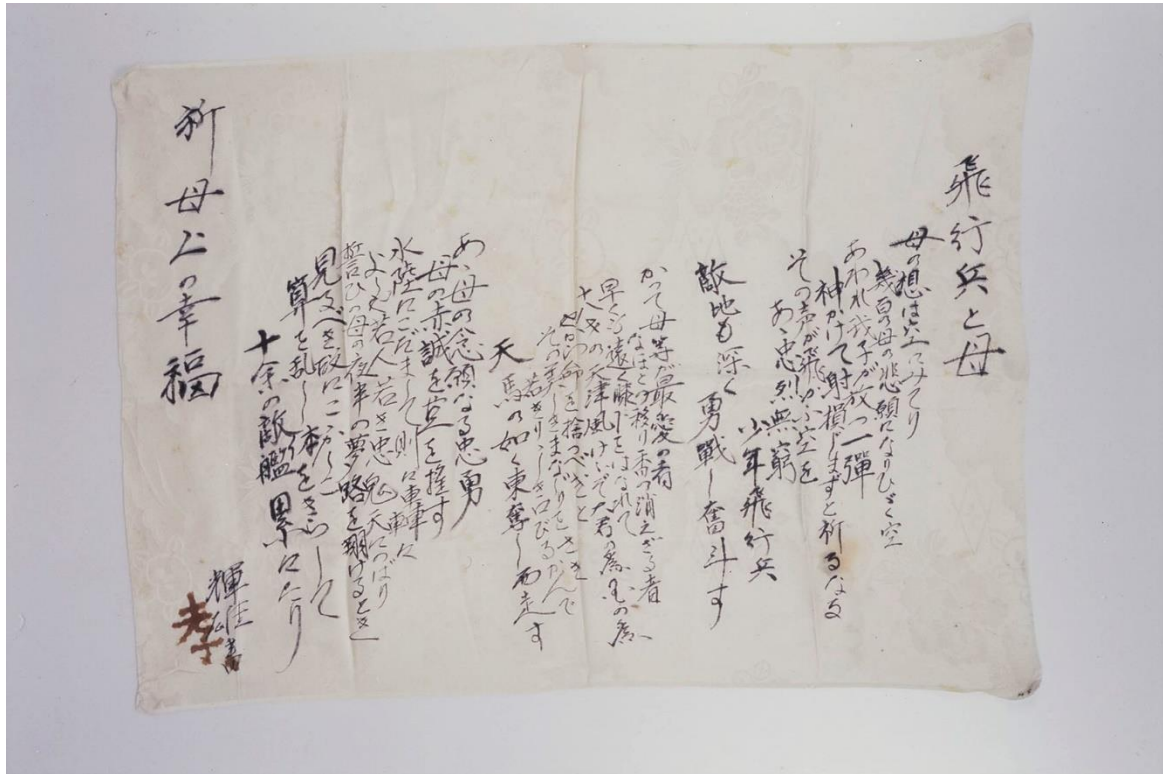 飛行兵と母
母の想は空にみてり
幾百母の悲願になりひゞく空
あわれ我子が放つ一彈
神かけて射損じまずと祈るなる
その声が飛かふ空を
あゝ忠烈無窮
少年飛行兵
敵地も深く勇戦し奮斗す
かつて母等が最愛の者
なほとけ移り香の消えざる者
早くも遠く膝下をはなれて
大君の為国の為
を捨つべきと
その美しきまなじりをさき
若きりゝしき口びるかんで
天馬の如く東奪し西走す
あゝ母の念願なる忠勇
母の赤誠を空を搖す
水陸にこだまして則に轟々
よくも若人若き忠魂天にのぼり
誓ひの母の夜半の夢路を翔けるとき
見るべき敵にこゝかしこ
算を乱し本をきらして
十余の敵艦累にたり
祈母上の幸福
輝生書
孝